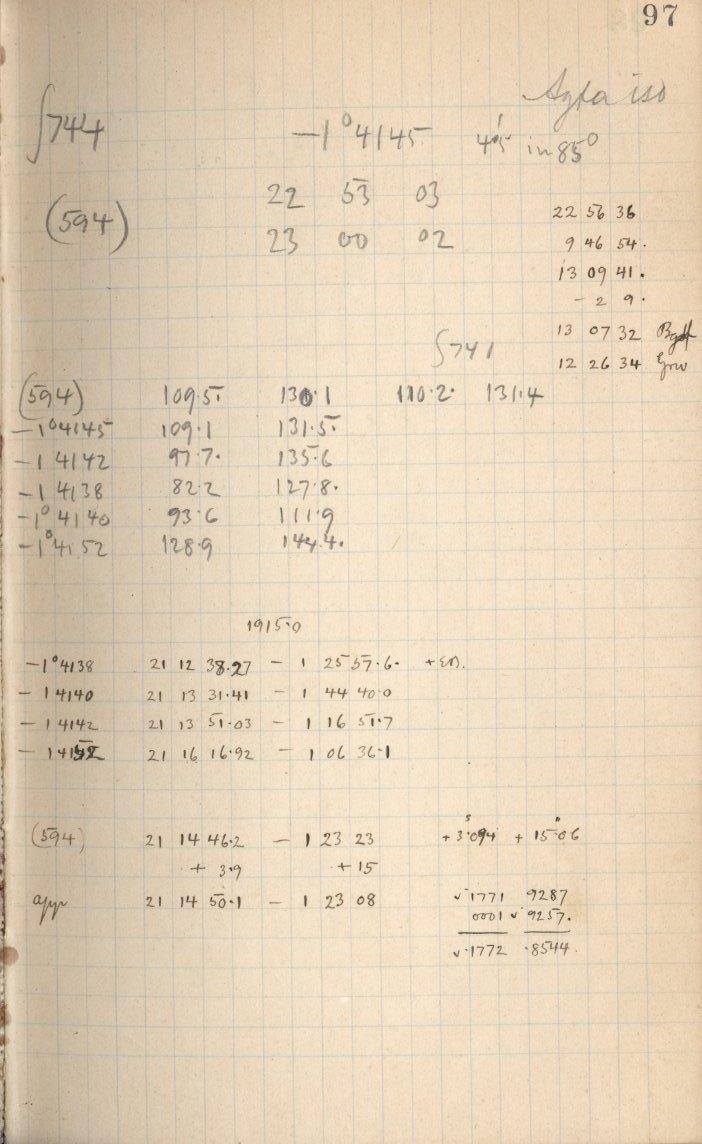 97
Agfa iso
∫744 -1°4145 4'.5 in 85°
(594) 22 53 03
23 00 02
22 56 36
9 46 54.
13 09 41.
- 2 9.
13 07 32
12 26 34 Grw
∫741
(594) 109.5 130.1 110.2. 131.4
-1°4145 109.1 131.5
-1 4142 97.7. 135.6
-1 4138 82.2 127.8.
-1°4140 93.6 111.9
-1°4152 128.9 144.4.
1915.0
-1°4138 21 12 38.27 - 1 25 57.6.
- 1 4140 21 13 31.41 - 1 44 40.0
- 1 4142 21 13 51.03 - 1 16 51.7
- 1 4152 21 16 16.92 - 1 06 36.1
(594) 21 14 46.2 - 1 23 23 +3ˢ.094 + 15″.06
+ 3.9 +15
appr 21 14 50.1 - 1 23 08
√.1771 9287
0001 √ 9257.
√.1772 .8544